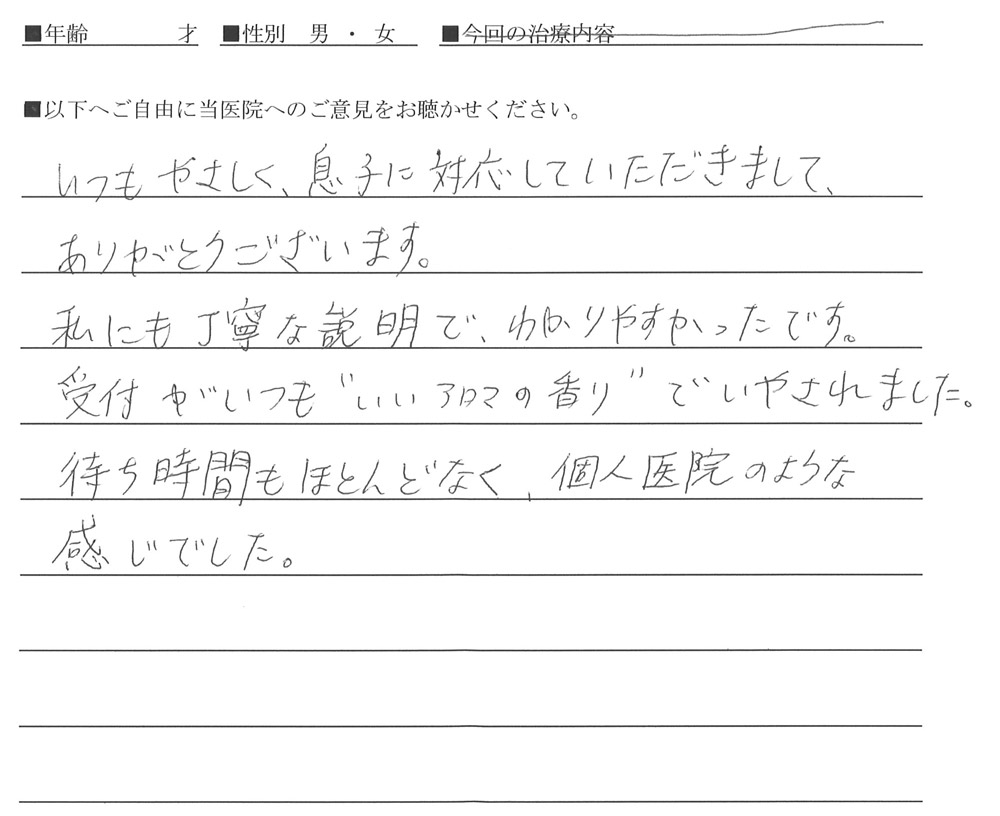 ■年齢　　　才　■性別　男・女　■今回の治療内容
■以下へご自由に当医院へのご意見をお聴かせください。
いつもやさしく、息子に対応していただきまして、
ありがとうございます。
私にも丁寧な説明で、わかりやすかったです。
受付がいつも"いいアロマの香り"でいやされました。
待ち時間もほとんどなく、個人医院のような
感じでした。